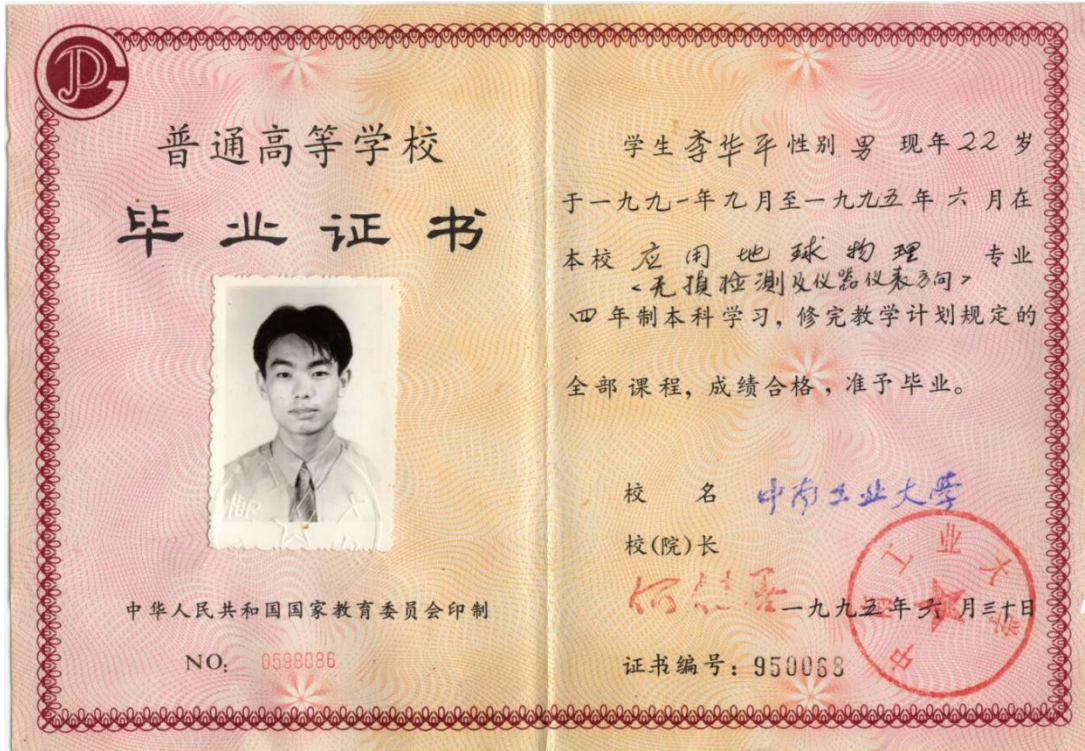 普通高等学校
毕业证书
中华人民共和国国家教育委员会印制
NO: 0598086
学生李华平性别 男 现年22岁
于一九九一年九月至一九九五年六月在
本校 应用地球物理 专业
<无损检测及仪器仪表方向>
四年制本科学习，修完教学计划规定的
全部课程，成绩合格，准予毕业。
校 名 中南工业大学
校(院)长
一九九五年六月三十日
证书编号：950068
中南工业大学